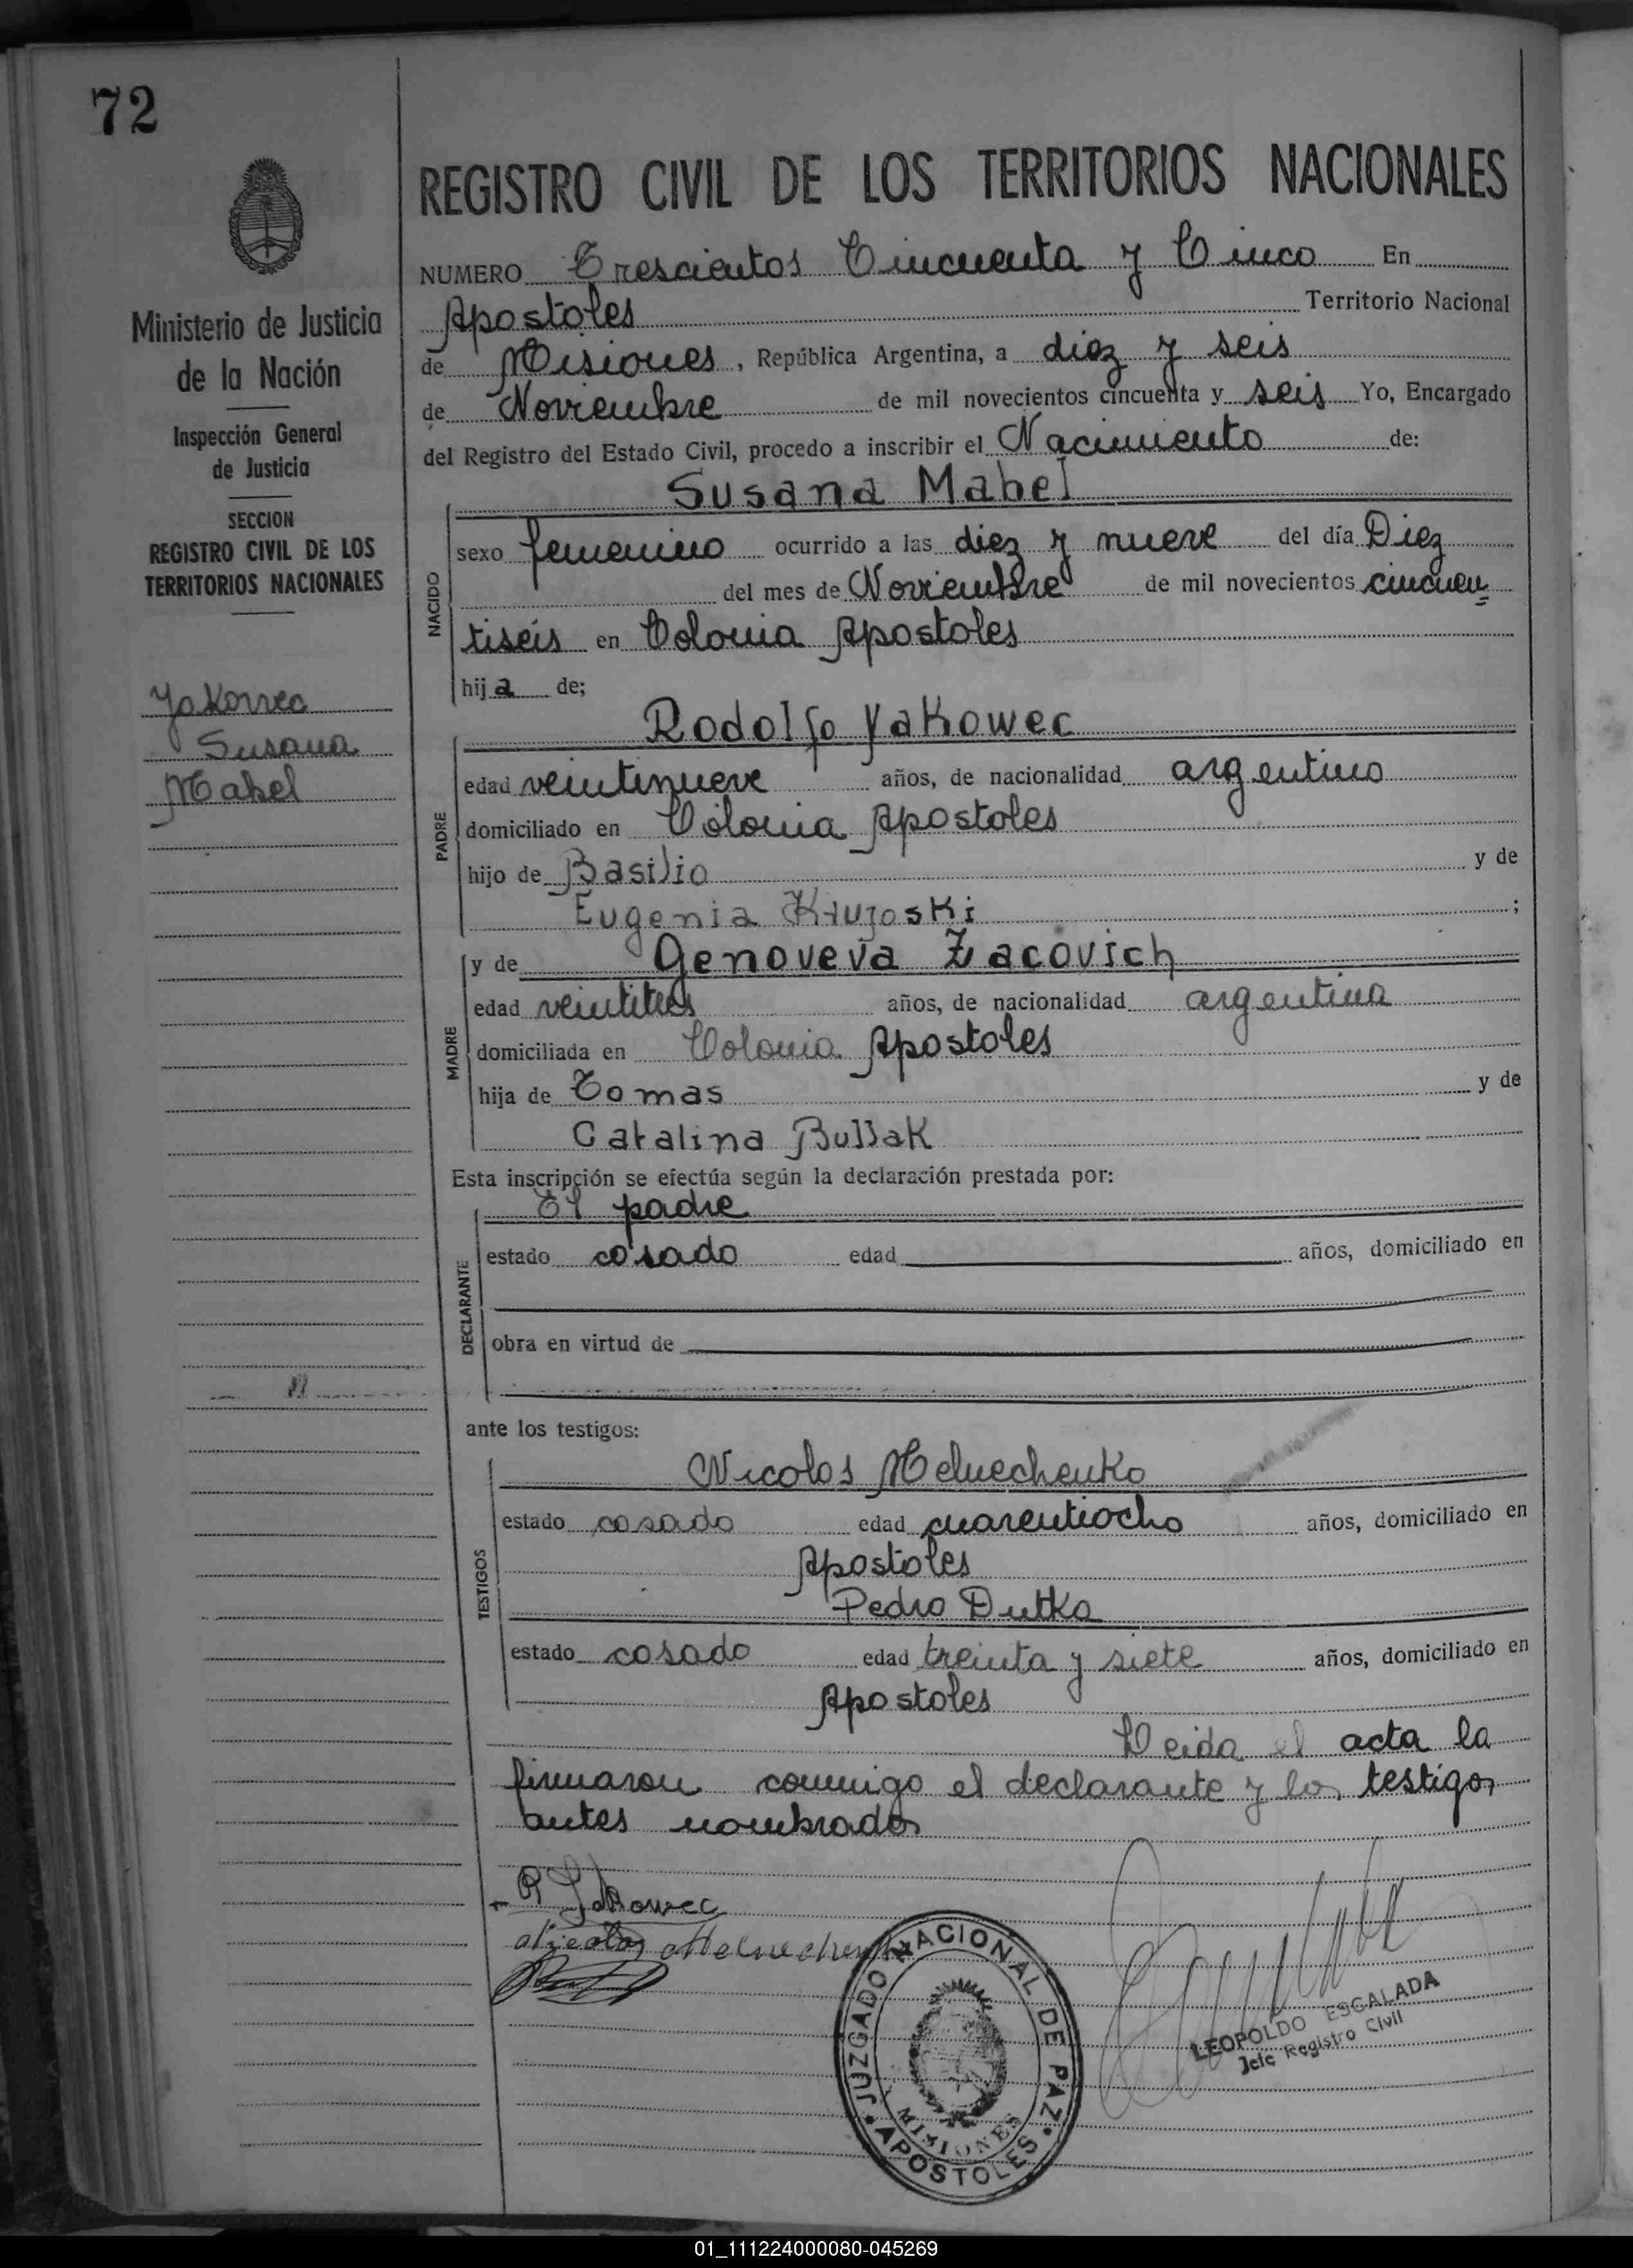 72
Ministerio de Justicia
de la Nación
Inspección General
de Justicia
SECCION
REGISTRO CIVIL DE LOS
TERRITORIOS NACIONALES
Yakowec
Susana
Mabel
REGISTRO CIVIL DE LOS TERRITORIOS NACIONALES
NUMERO Trescientos Cincuenta y Cinco En
Apostoles Territorio Nacional
de Misiones, República Argentina, a diez y seis
de Noviembre de mil novecientos cincuenta y seis Yo, Encargado
del Registro del Estado Civil, procedo a inscribir el Nacimiento de:
Susana Mabel
NACIDO
sexo femenino ocurrido a las diez y nueve del día Diez
del mes de Noviembre de mil novecientos cincuen=
tiseis en Colonia Apostoles
hija de;
Rodolfo Yakowec
PADRE
edad veintinueve años, de nacionalidad argentino
domiciliado en Colonia Apostoles
hijo de Basilio y de
Eugenia ;
y de Genoveva Zacovich
MADRE
edad veintitres años, de nacionalidad argentina
domiciliada en Colonia Apostoles
hija de Tomas y de
Catalina BullaK
Esta inscripción se efectúa según la declaración prestada por:
El padre
DECLARANTE
estado casado edad años, domiciliado en
obra en virtud de
ante los testigos:
Nicolas Melnechenko
TESTIGOS
estado casado edad cuarentiocho años, domiciliado en
Apostoles
Pedro Dutka
estado casado edad treinta y siete años, domiciliado en
Apostoles
Leida el acta la
firmaron conmigo el declarante y los testigos
antes nombrados
R Yakowec
JUZGADO NACIONAL DE PAZ
MISIONES
APOSTOLES
LEOPOLDO ESCALADA
Jefe Registro Civil
01_111224000080-045269